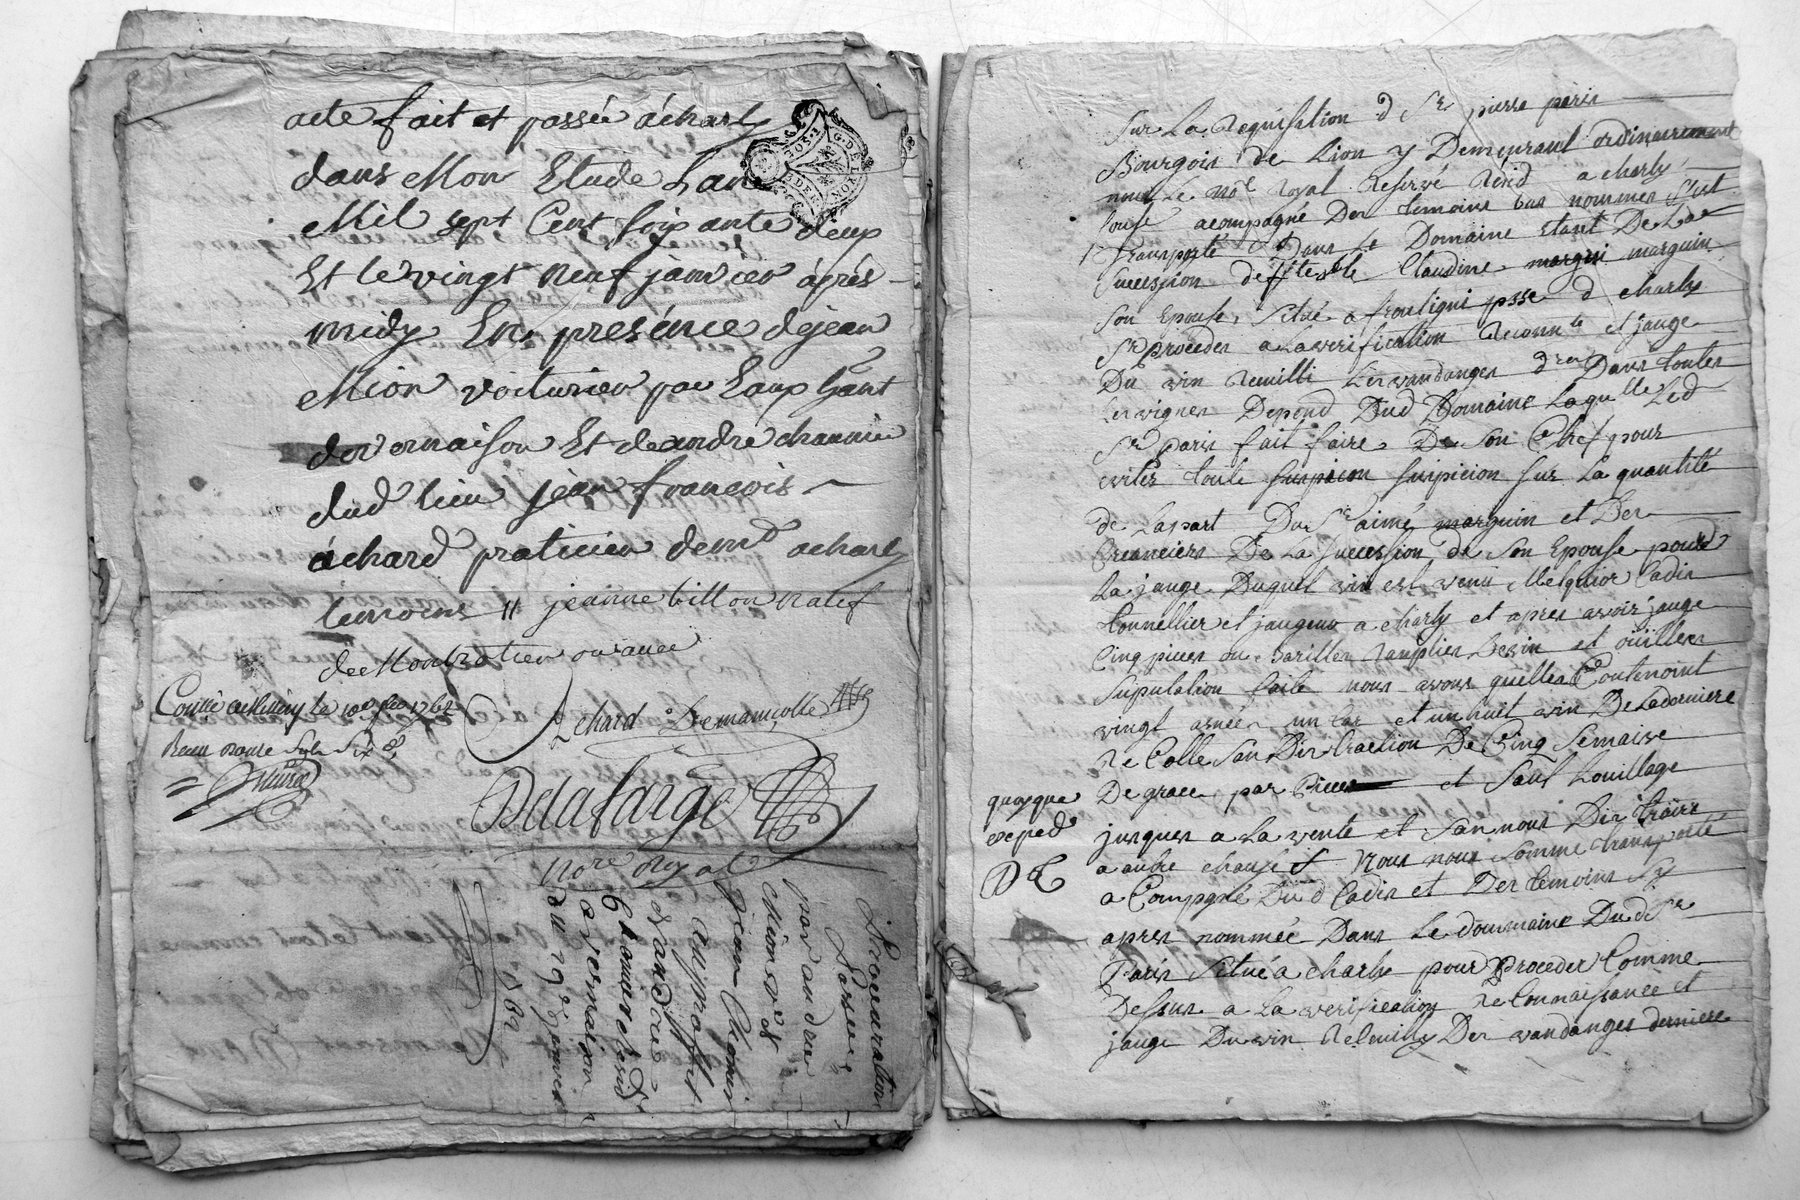 acte fait et passée à charly
dans Mon Etude Lan
Mil sept Cent soixante deux
Et le vingt neuf janvier après
midy En présence de jean
Mion voiturier par Eaux hant
de vernaison Et de andré chaumie
dud lieu jean françois
achard praticien demt a charly
temoins // jeanne billon natif
de Montratier ou
Contle a Milery le 10e feo 1762
Reçu Douze Sols Six d
achard Demaincolle
Delafarge
Nore Royal
Procuration
Passée
par andré
Mion v d
jean Chomie
au proffit
d andré
Chaumie
a vernaison
du 29e janvier
1762
Sur La Requisition d Sr pierre paris
Bourgois de Lion y Demeurant ordinairement
nous Le nore royal reservé resid a charly
sousé acompagné Des temoins bas nommes S'est
transporté dans Le Domaine etant De La
Succession deffte Claudine margui marguin
Son Epouse, Situé a frontigni psse d charly
Sr proceder a La verification reconnce et jauge
Du vin reuilli Les vandanges dres Dans toutes
Les vignes Depend Dud Domaine Laquelle Led
Sr paris fait faire De Son Chef pour
eviter toute suspicion suspicion sur La quantité
de La part Du Sr aimé marguin et Des
Creanciers De La Succession de Son Epouse pour
La jauge Duquel vin est venu Melquior Cadis
tonnellier et jaugeur a charly et apres avoir jaugé
Cinq pieces ou barilles ramplies De vin et ouïlles
Suputation faite nous avons quelles Contenoint
vingt asnées un bar et un huit vin De La derniere
reColle San Distraction De Cinq Semaise
De grace par Pieces et Sauf Louillage
jusques a La vente et San nous Distraire
a autre chause et Nous nous Somme transporté
a Compagné Du d Cadis et Des temoins Sy
apres nommée Dans Le doumaine Du d Sr
Paris Situé a charly pour Proceder Comme
Dessus a La verification reConnaissance et
jauge Du vin releuilly Des vandanges derniere
quoyque
exped